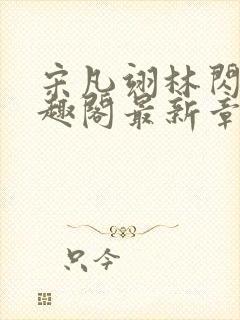 宋凡翊林閃
趣閣最新章
只今